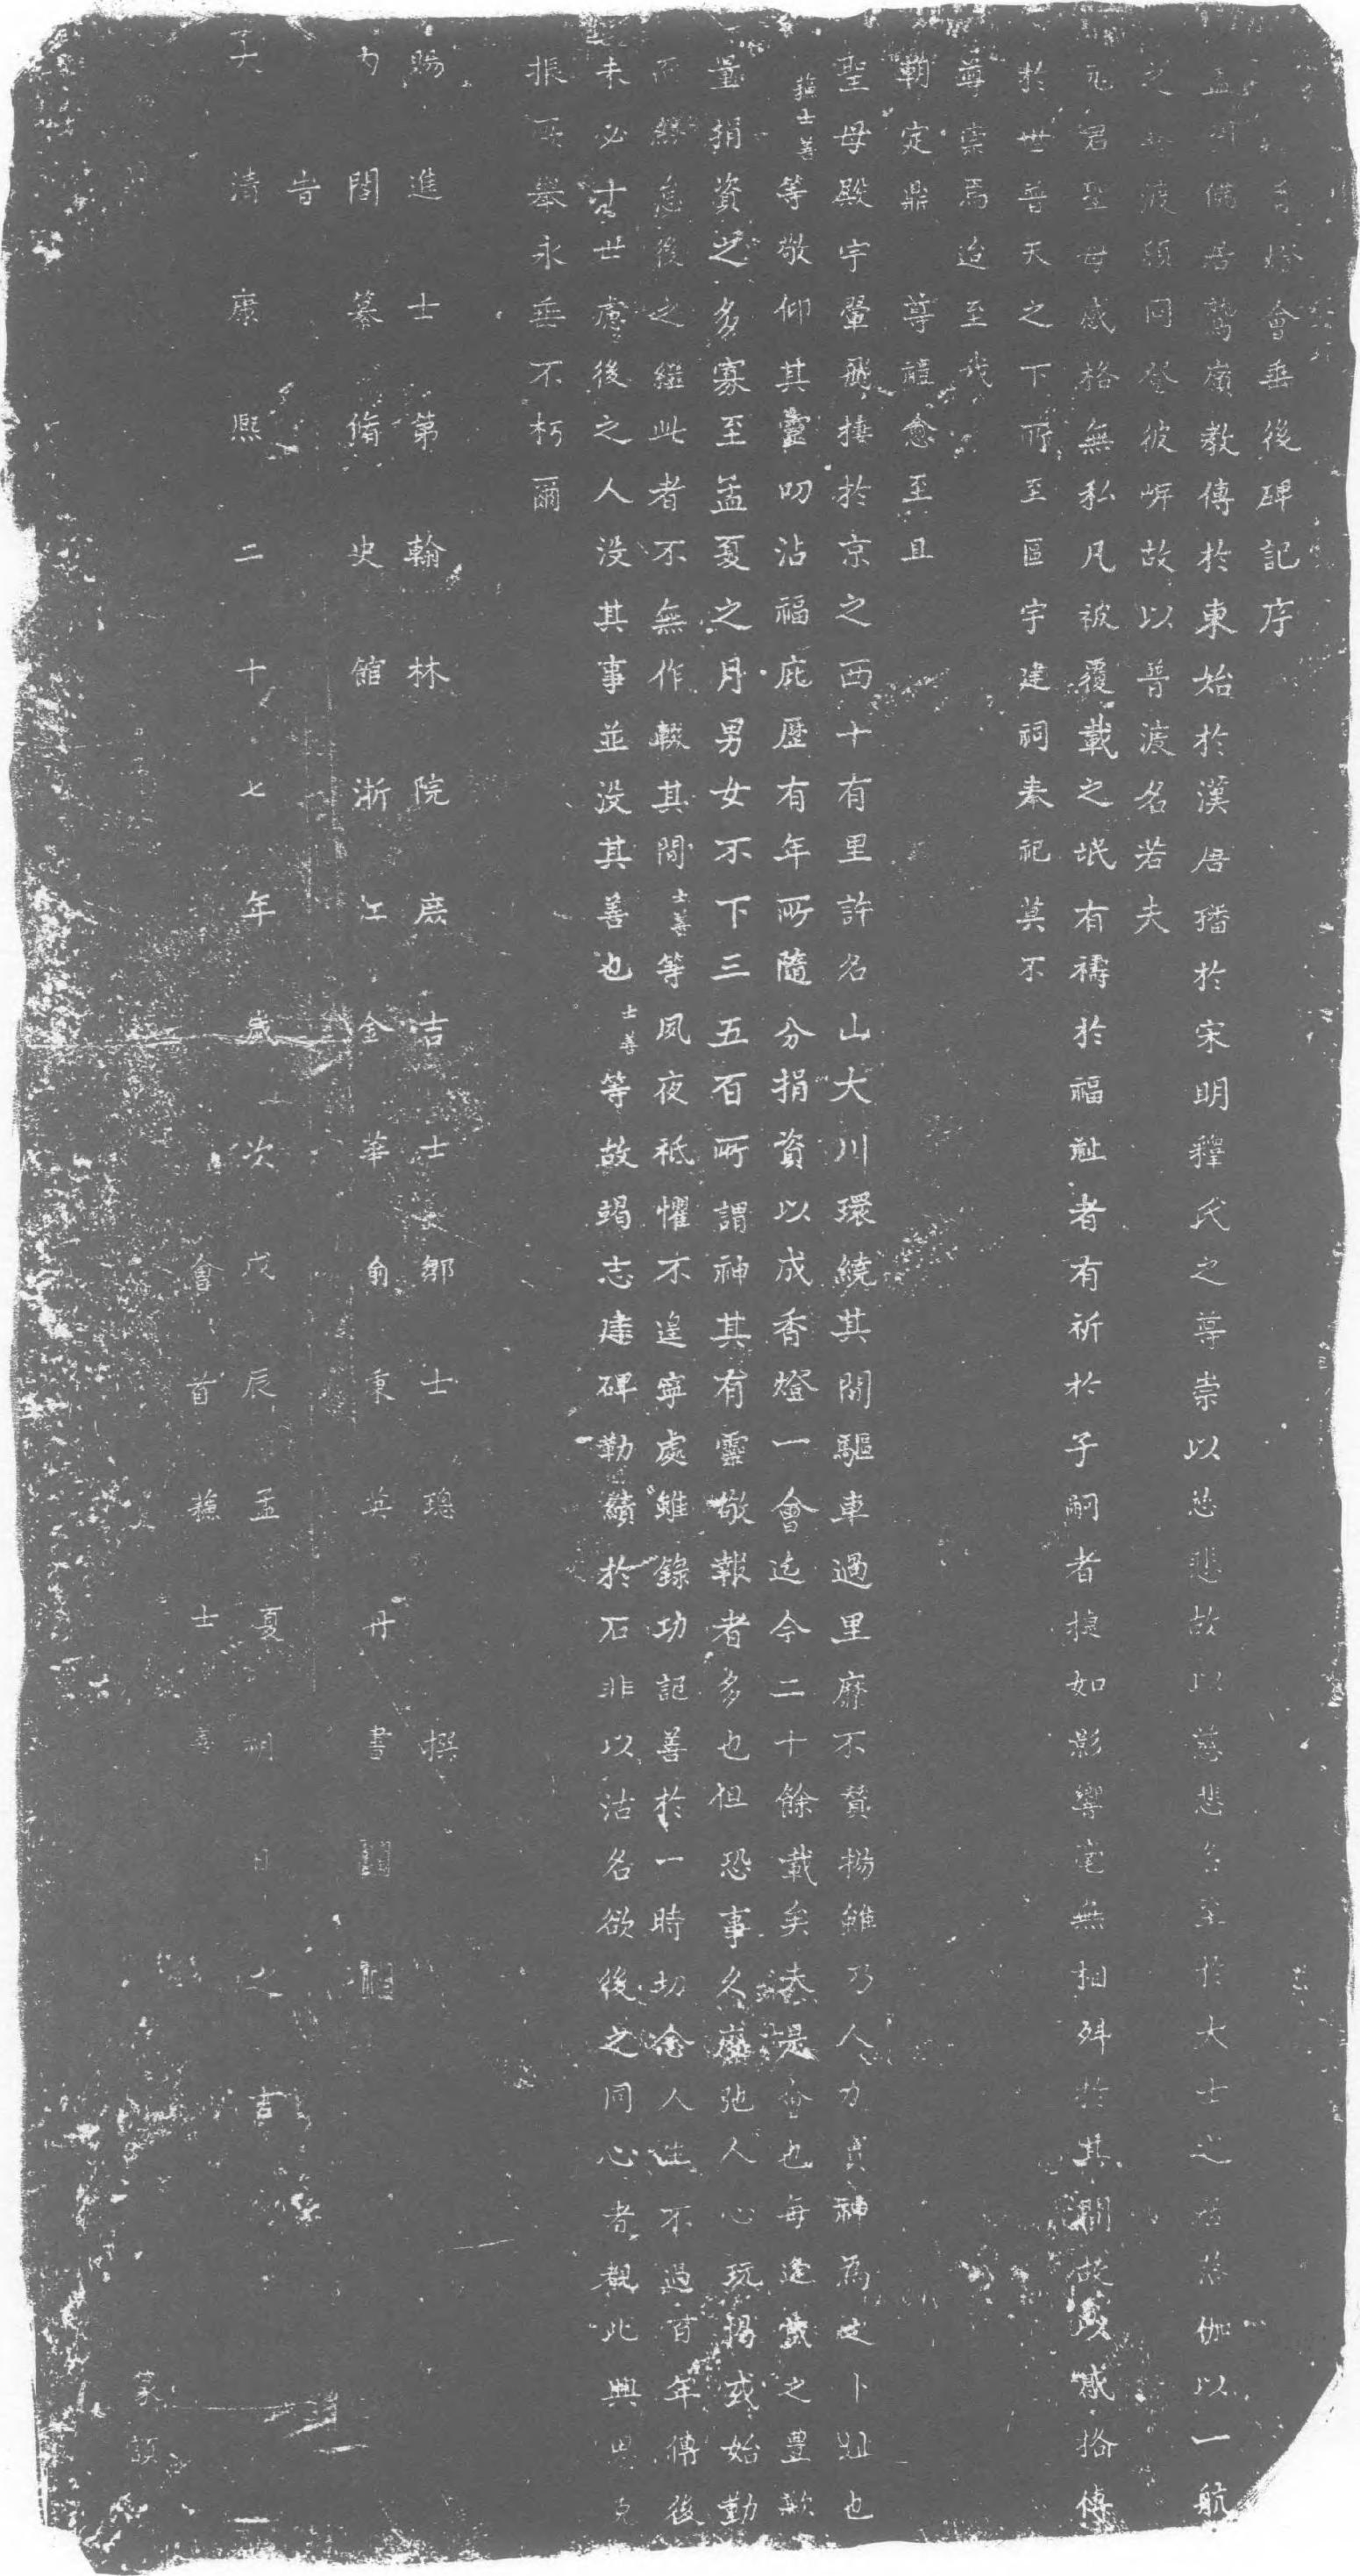 香燈會垂後碑記序
佛居鷲嶺教傳於東始於漢唐播於宋明釋氏之尊崇以慈悲故以慈悲名至於大士之居落伽以一航
之渡願同登彼岸故以普渡名若夫
元君聖母感格無私凡被覆載之氓有禱於福祉者有祈於子嗣者捷如影響毫無相舛於其間故以感格傳
於世普天之下所至區宇建祠奉祀莫不
尊崇焉迨至我
朝定鼎尊禮愈至且
聖母殿宇翬飛捿於京之西十有里許名山大川環繞其間驅車過里靡不贊揚雖乃人力實神為之卜爼也
蘓士善等敬仰其靈叨沾福庇歷有年所隨分捐資以成香燈一會迄今二十餘載矣是會也每逢歲之豊歉
量捐資之多寡至孟夏之月男女不下三五百所謂神其有靈敬報者多也但恐事久廢弛人心玩愒或始勤
而終怠後之繼此者不無作輟其間士善等夙夜祗懼不遑寧處雖錄功記善於一時切念人生不過百年傳後
未必十世慮後之人没其事並没其善也士善等故竭志建碑勒績於石非以沽名欲後之同心者覩此興思克
振再舉永垂不朽爾
賜進士第翰林院庶吉士鄒士璁撰
內閣纂脩史館浙江金華俞秉英丹書
旹
大清康熙二十七年歲次戊辰孟夏朔日之吉
會首蘓士善
篆額